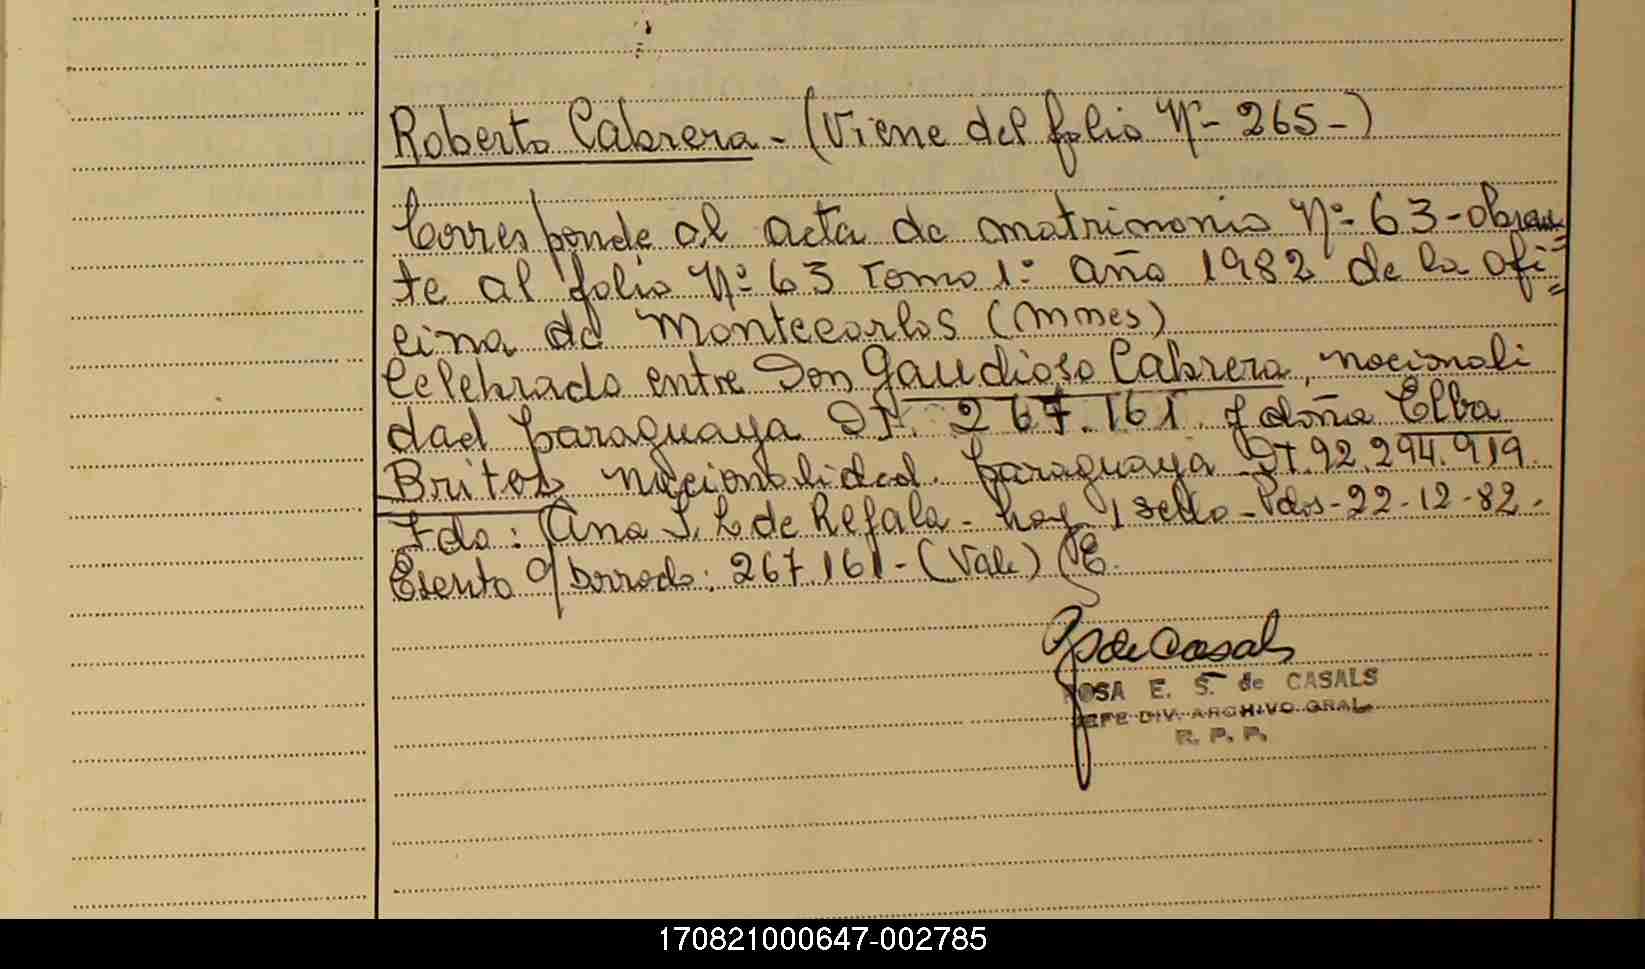 Roberto Cabrera - (Viene del folio Nº- 265-)
Corresponde al acta de matrimonio Nº- 63-obran=
te al folio Nº 63 Tomo 1º Año 1982 de la ofi=
cina de Montecarlos (Mnes)
Celebrado entre Don Gaudioso Cabrera, nacionali
dad paraguaya DI. 267.161. y doña Elba
Britos nacionalidad. paraguaya DI.92.294.919.
Fdo: Ana S. L de Refala- hay 1 sello-Pdas-22-12-82-
Escrito s/borrado: 267161-(Vale)
R S de Casals
ROSA E. S. de CASALS
JEFE DIV. ARCHIVO GRAL.
R. P. P.
170821000647-002785